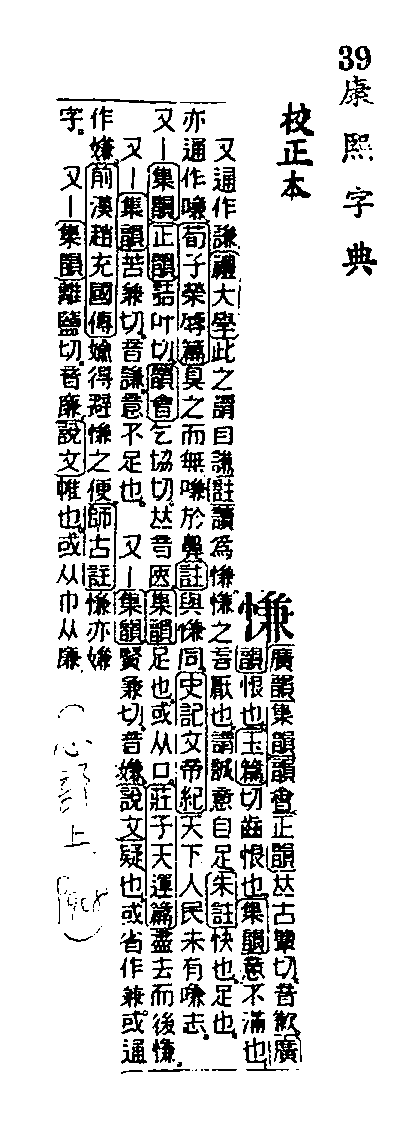 39康熙字典
校正本
慊
廣韻集韻韻會正韻𠀤古簟切。音歉。廣
韻恨也。玉篇切齒恨也。集韻意不滿也。
又通作謙禮大學此之謂自謙註讀爲慊慊之言厭也。謂誠意自足。朱註快也。足也。
亦通作嗛荀子榮辱篇臭之而無嗛於鼻註與慊同。史記文帝紀天下人民未有嗛志。
又丨集韻正韻詰叶切。韻會乞協切。𠀤音匧。集韻足也。或从口。莊子天運篇盡去而後慊。
又丨集韻苦兼切。音謙。意不足也。 又丨集韻賢兼切。音嫌。說文疑也。或省作兼。或通
作嫌。前漢趙充國傳媮得避慊之便。師古註慊亦嫌
字。 又丨集韻離鹽切。音廉。說文帷也。或从巾从廉
(心部上